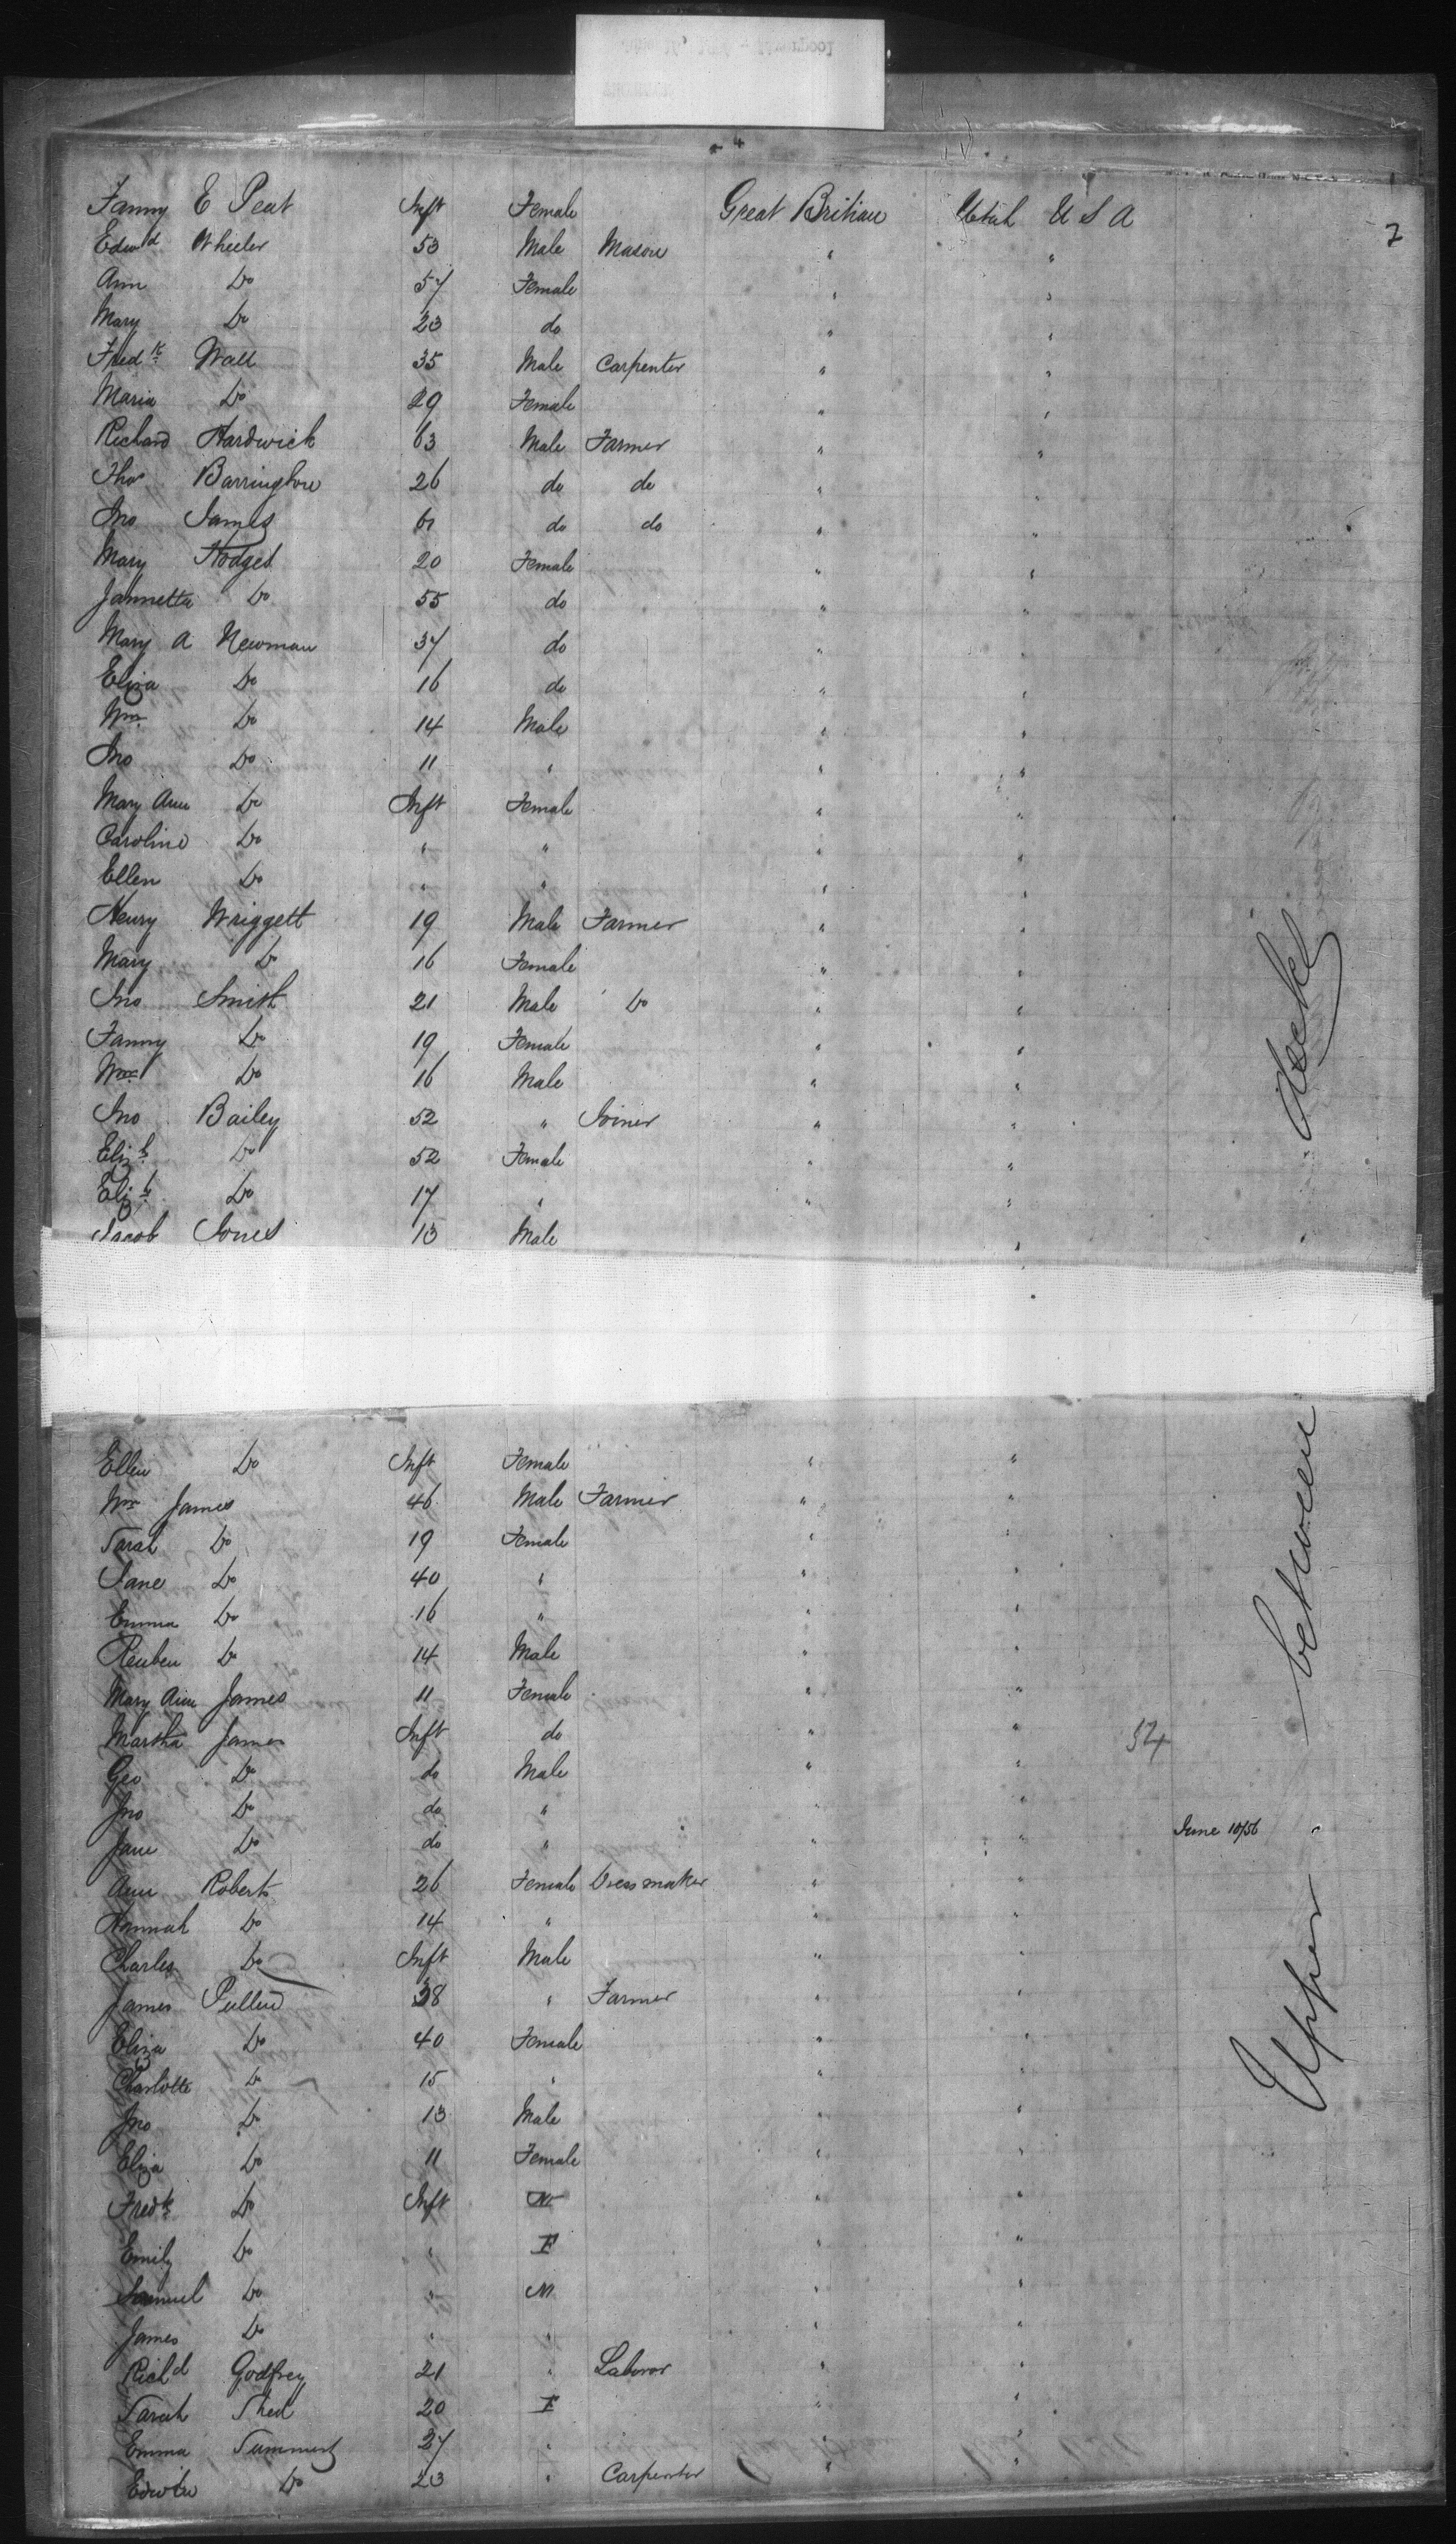 Fanny E Peat Inft Female Great Britian Utah U S A
7
Edwd Wheeler 53 Male Mason " "
Ann Do 57 Female " "
Mary Do 23 do " "
Fredk Wall 35 Male Carpenter " "
Maria Do 29 Female " "
Richard Hardwick 63 Male Farmer " "
Thos Barrington 26 do do " "
Jno James 61 do do " "
Mary Hodges 20 Female " "
Jannetta Do 55 do " "
Mary A Newman 37 do " "
Eliza Do 16 do " "
Wm Do 14 Male " "
Jno Do 11 " " "
Mary Ann Do Inft Female " "
Caroline Do " " " "
Ellen Do " " " "
Henry Wriggett 19 Male Farmer " "
Mary Do 16 Female " "
Jno Smith 21 Male Do " "
Fanny Do 19 Female " "
Wm Do 16 Male " "
Jno Bailey 52 " Joiner " "
Elizh Do 52 Female " "
Elizh Do 17 " " "
Jacob Jones 13 Male "
Ellen Do Inft Female " "
Wm James 46 Male Farmer " "
Sarah Do 19 Female " "
Jane Do 40 " " "
Emma Do 16 " " "
Reuben Do 14 Male " "
Mary Ann James 11 Female " "
Martha James Inft do " " 524
Geo Do do Male " "
Jno Do do " " "
Jane Do do " " " June 10/56
Ann Roberts 26 Female Dressmaker " "
Hannah Do 14 " " "
Charles Do Inft Male " "
James Pullen 38 " Farmer " "
Eliza Do 40 Female " "
Charlotte Do 15 " " "
Jno Do 13 Male " "
Eliza Do 11 Female " "
Fredk Do Inft M " "
Emily Do " F " "
Samuel Do " M " "
James Do " " " "
Richd Godfrey 21 " Laboror " "
Sarah Shed 20 F " "
Emma Summers 27 " " "
Edwin Do 23 " Carpenter " "
Upper between decks